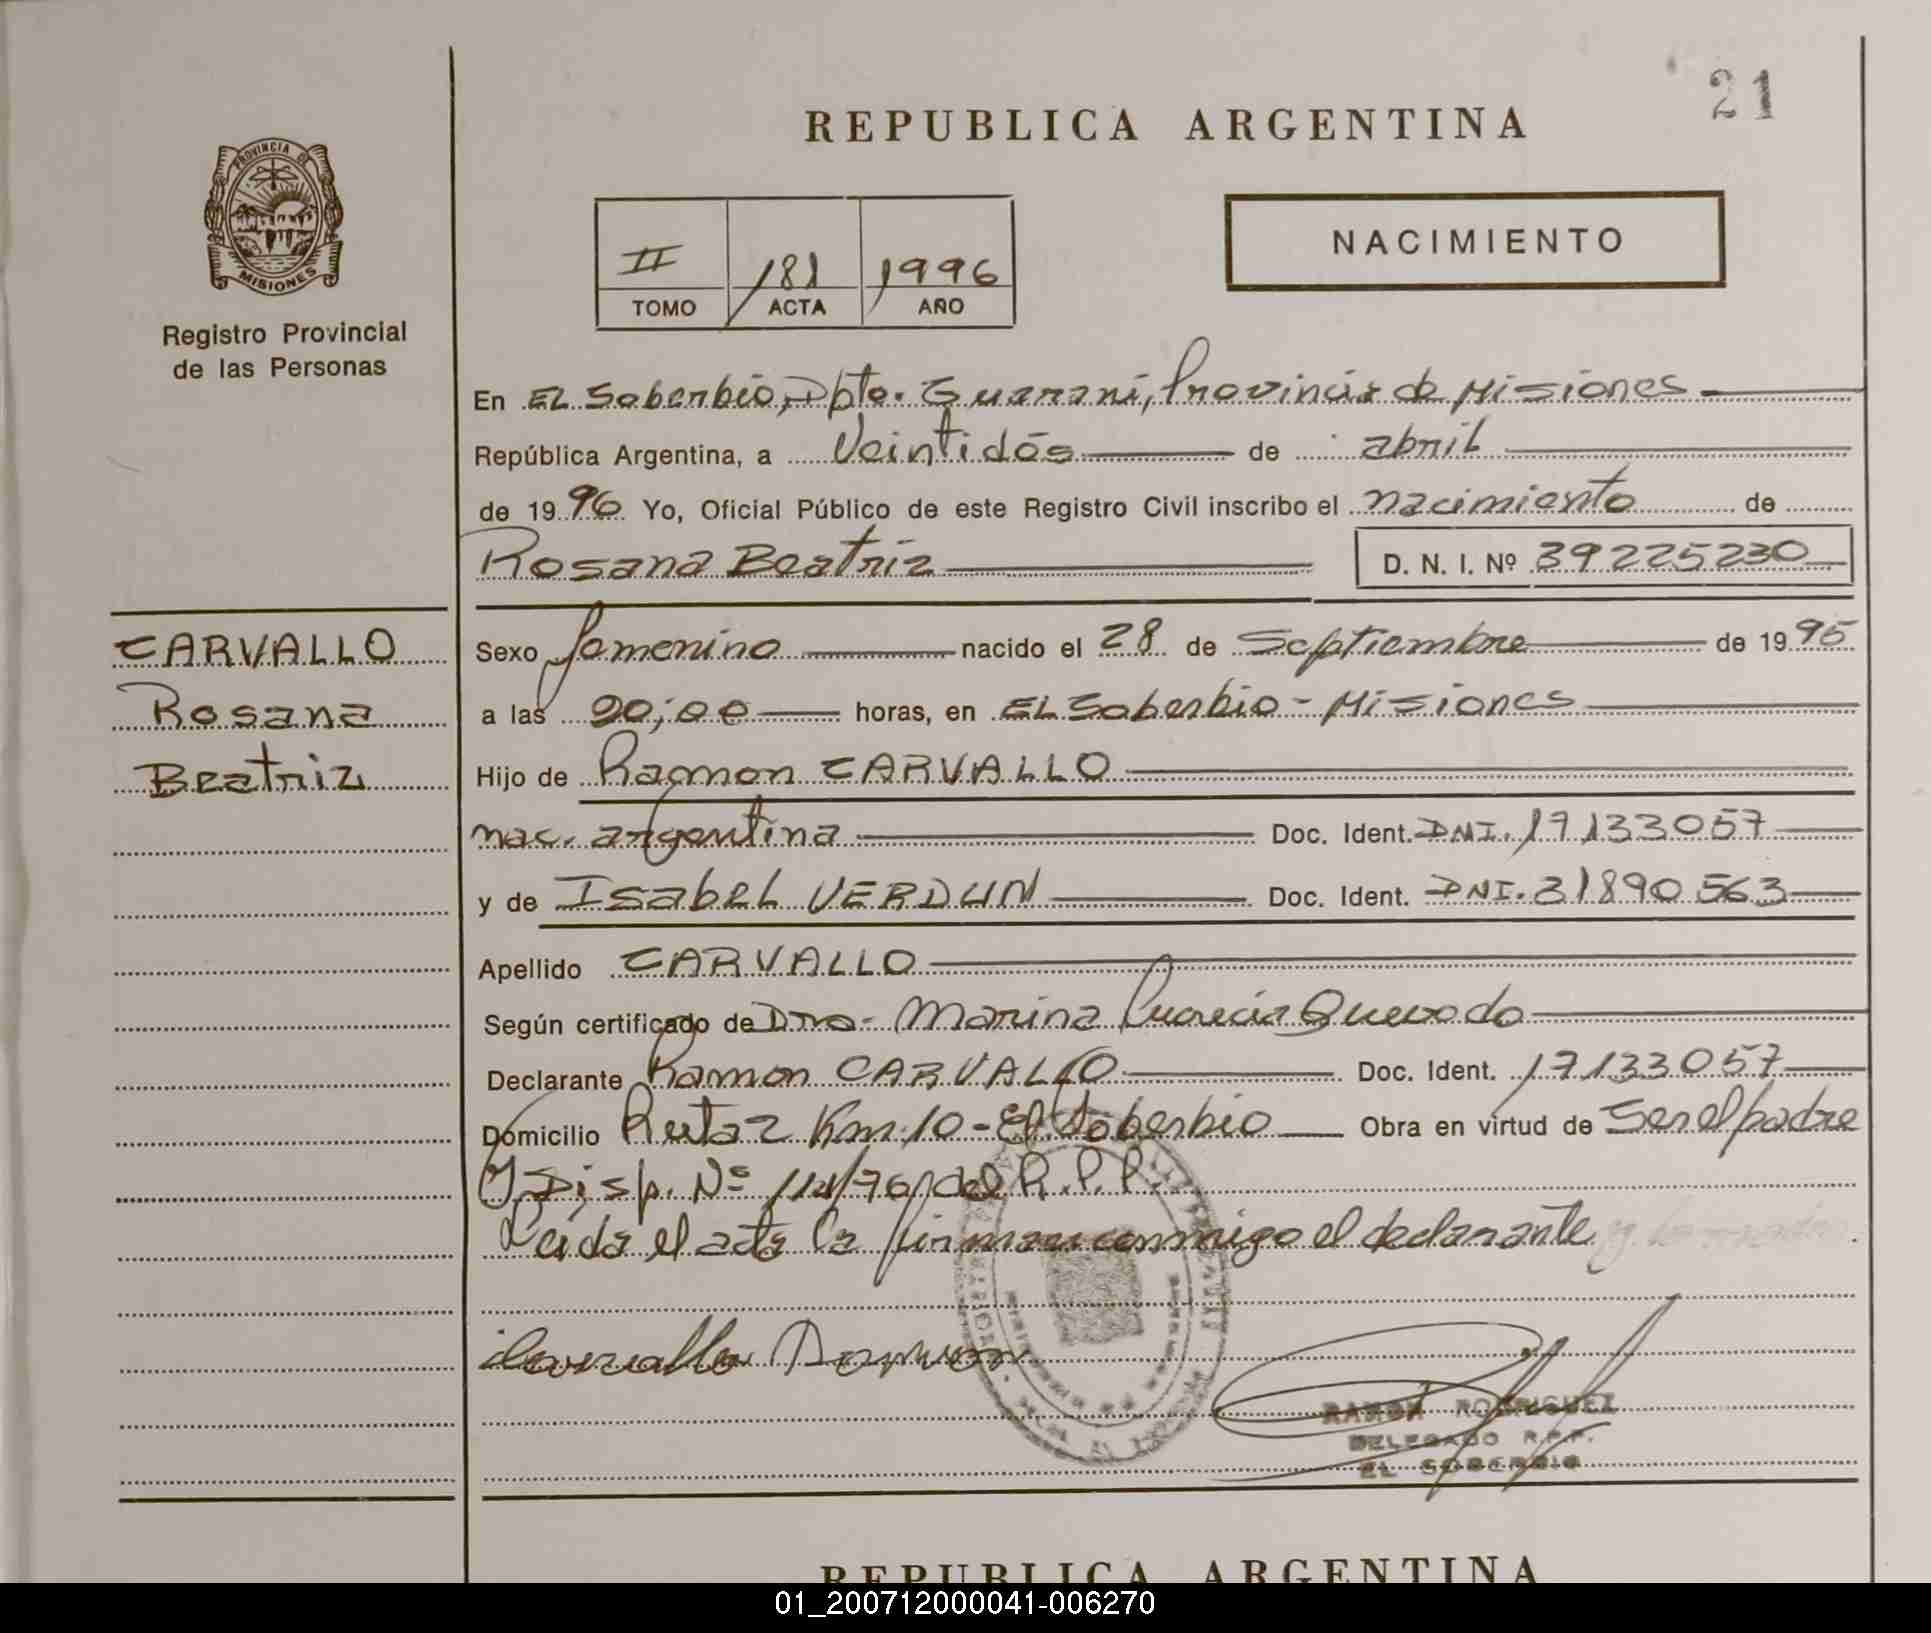 21
REPUBLICA ARGENTINA
PROVINCIA DE
MISIONES
Registro Provincial
de las Personas
II 181 1996
TOMO ACTA AÑO
NACIMIENTO
En EL Soberbio, Dpto. Guaraní, Provincia de Misiones
República Argentina, a Veintidós de abril
de 1996 Yo, Oficial Público de este Registro Civil inscribo el nacimiento de
Rosana Beatriz D. N. I. Nº 39225230
CARVALLO
Rosana
Beatriz
Sexo femenino nacido el 28 de Septiembre de 1995
a las horas, en EL Soberbio - Misiones
Hijo de Ramon CARVALLO
nac. argentina Doc. Ident. DNI. 17133057
y de Isabel VERDUN Doc. Ident. DNI. 31890563
Apellido CARVALLO
Según certificado de Dra. Marina Quevedo
Declarante Ramon CARVALLO Doc. Ident. 17133057
Domicilio Ruta 2 Km. 10 - El Soberbio Obra en virtud de Ser el padre
y Disp. Nº del R.P.P.
Leida el acta la firman conmigo el declarante
Carvallo Ramon
RAMON RODRIGUEZ
DELEGADO R.P.P.
EL SOBERBIO
REPUBLICA ARGENTINA
01_200712000041-006270